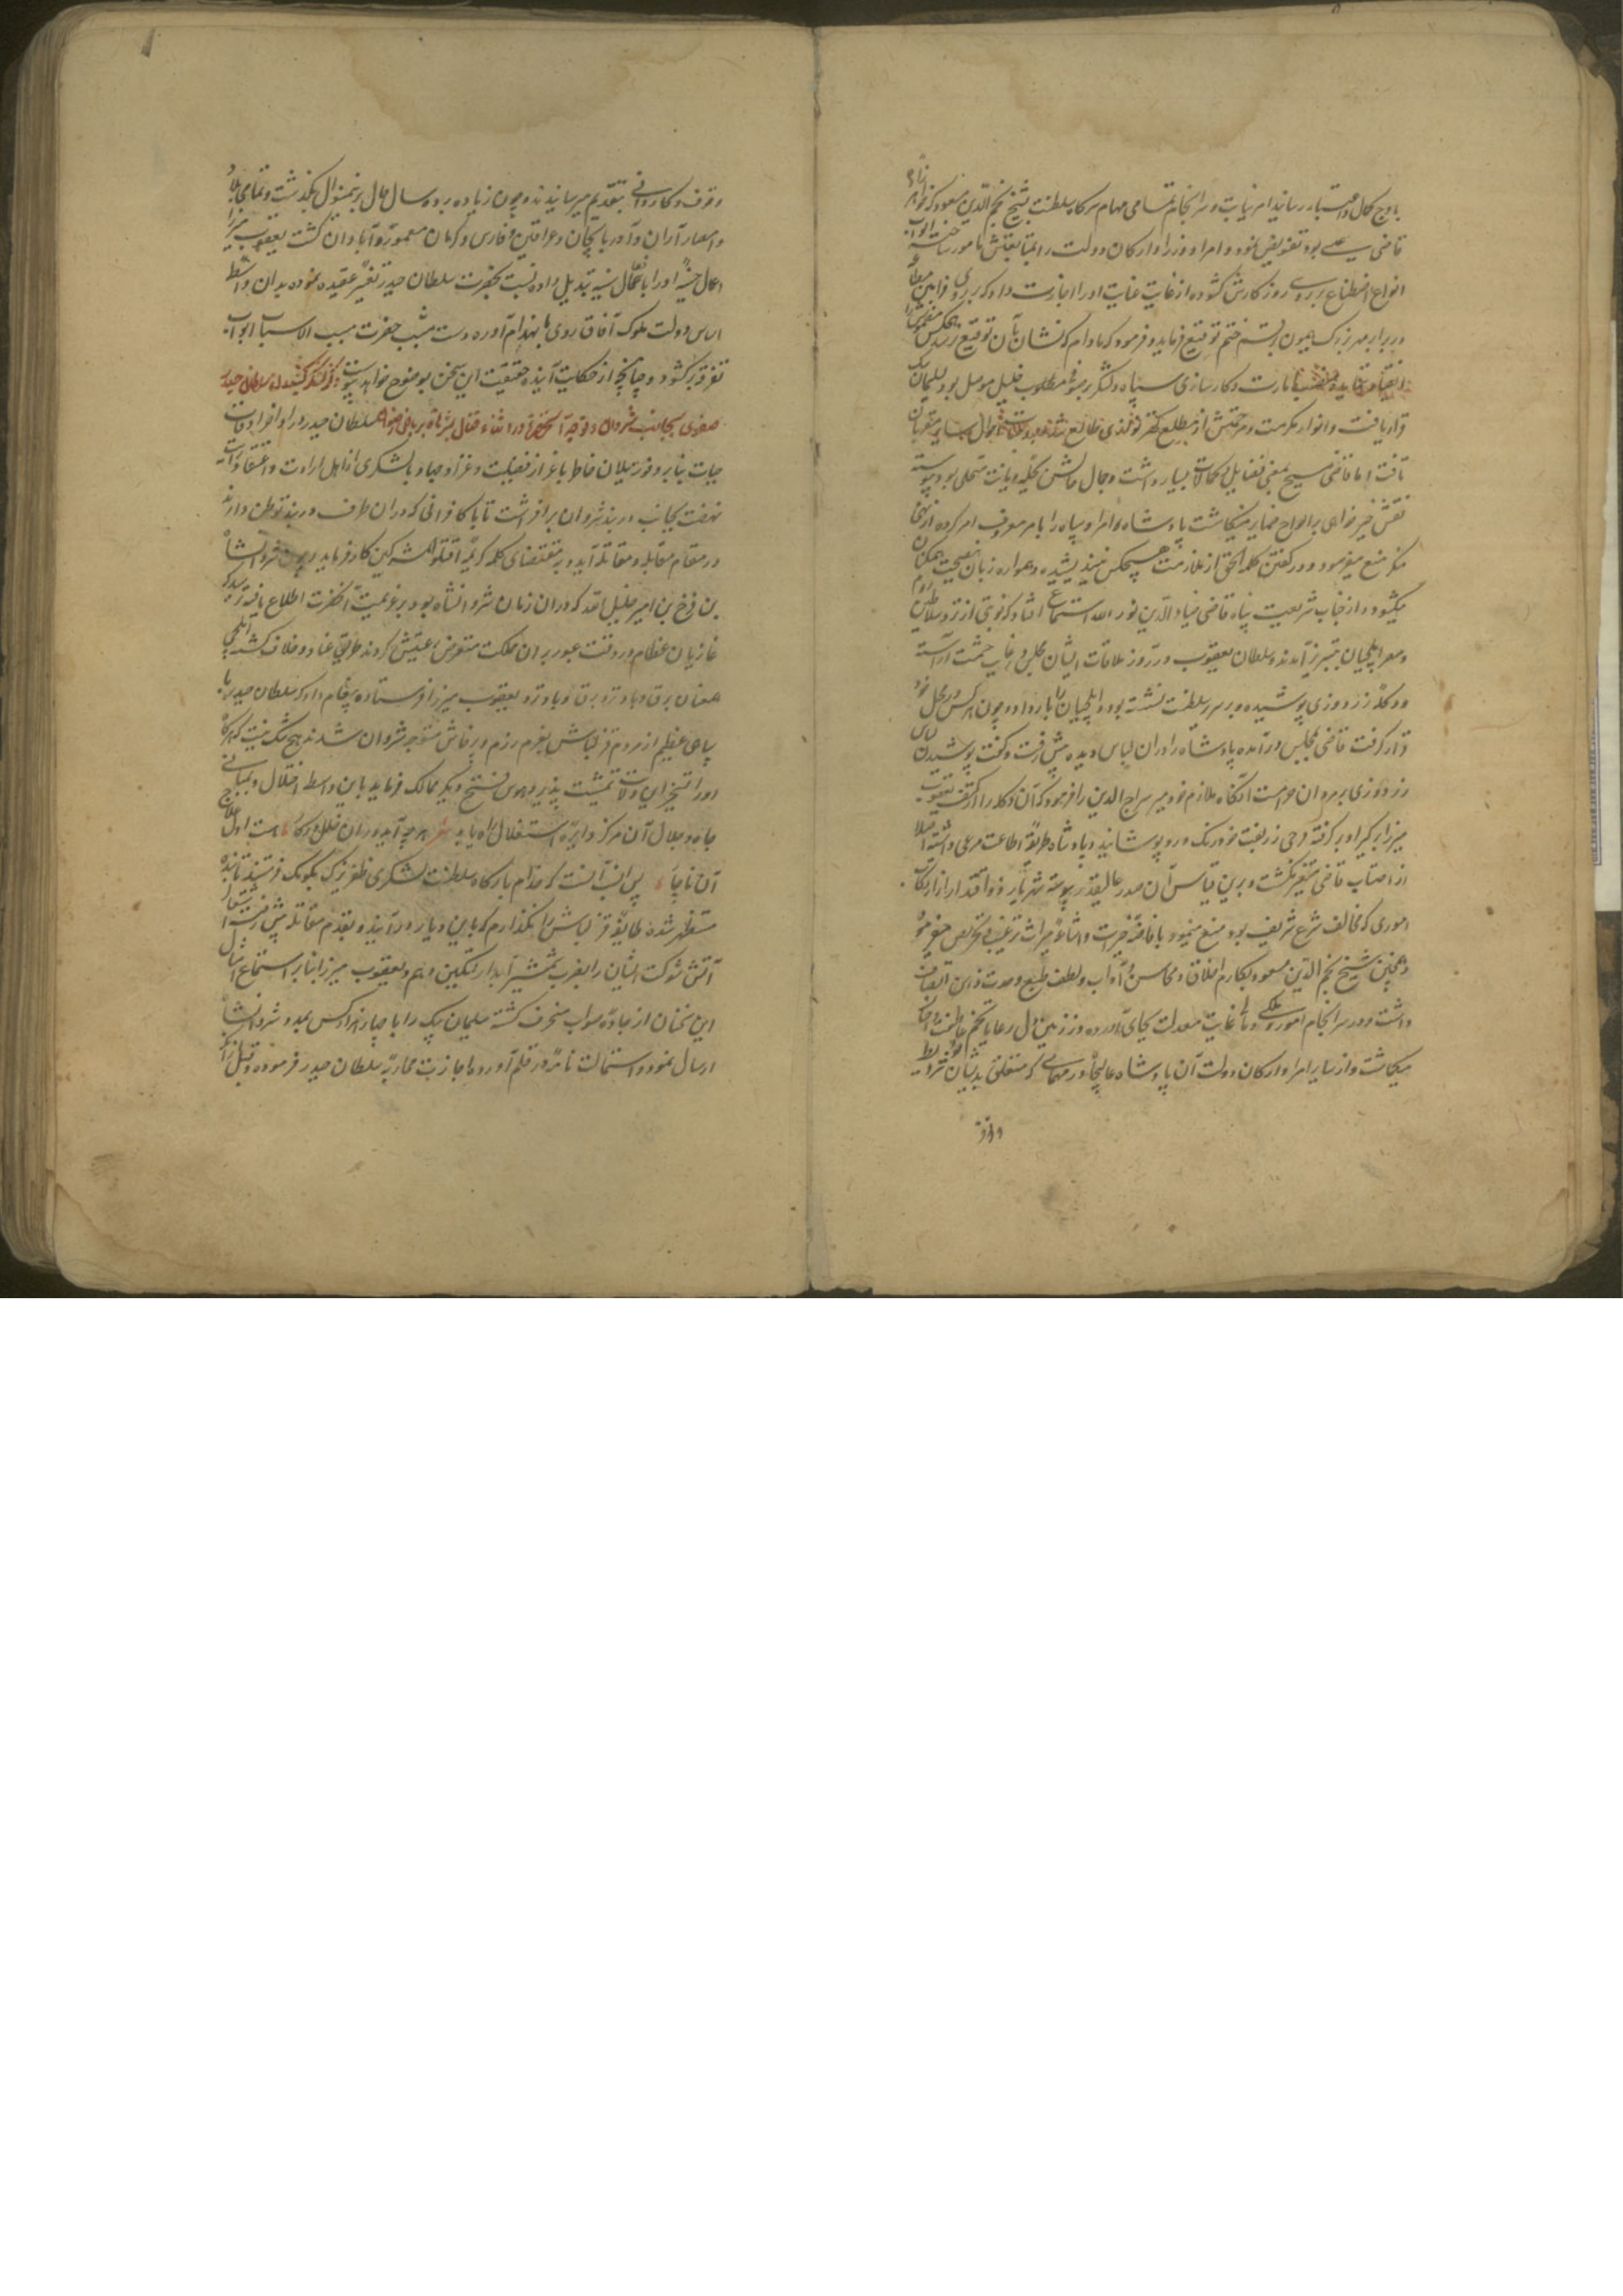 باوج کمال و اعتبار رسانید امر نیابت و سرانجام تمامی مهام سرکار سلطنت بشیخ نجم الدین مسعود که خواهرزاده
قاضی عیسی بود تفویض نمود و امرا و وزرا و ارکان دولت را بمتابعتش مامور ساخته ابواب
انواع اصطناع بر روی روزکارش کشوده از غایت عنایت او را اجازت داد که بر روی فرامین مطاع
در برابر مهر بزرک همیون رسم ختم توقیع فرماید و فرمود که مادام که نشان بآن توقیع نرسد هیچکس
بامارت و کارسازی سپاه و لشکر صوفی خلیل موصل بود و سلیمان بیک
قرار یافت و انوار مکرمت و مرحمتش از مطلع طالع احوال سایر مقربان
تافت اما قاضی مسیح بمعنی بفضایل و کمالات بسیار داشت و جمال حالش بحلیه دیانت متحلی بود پیوسته
نقش خیرخواهی بر الواح ضمایر مینکاشت پادشاه و امرا و سپاه را بامر معروف امر کرده از نهی
منکر منع میفرمود و در کفتن کلمة الحق از ملازمت هیچکس نیندیشیده و همواره زبان نصیحت بهمکنان
میکشود و از جناب شریعت پناه قاضی ضیاء الدین نور الله استماع افتاد که نوبتی از نزد سلاطین روم
و مصر ایلچیان بتبریز آمدند و سلطان یعقوب در روز ملاقات ایشان مجلس در غایت حشمت آراسته
و دکله زردوزی پوشیده و بر سریر سلطنت نشسته بود و ایلچیان را بار داد و چون هر کس در محل خود
قرار کرفت قاضی بمجلس درآمده پادشاه را در آن لباس دیده پیش رفت و کفت پوشیدن لباس
زردوزی بر مردان حرامست آنکاه ملازم خود میر سراج الدین را فرمود که آن دکله را از کتف یعقوب
میرزا برکیر او برکرفته فرجی زربفت خود رنک در و پوشانید و پادشاه طریقه اطاعت مرعی داشته اصلا
از احتساب قاضی متغیر نکشت و برین قیاس آن صدر عالیقدر پیوسته شهریار ذو اقتدار را از ارتکاب
اموری که مخالف شرع شریف بود منع مینمود بافاضه خیرات و اشاعه مبرات ترغیب و تحریص میفرمود
و همچنین شیخ نجم الدین مسعود بمکارم اخلاق و محاسن آداب و لطف طبع و حدت ذهن اتصاف
داشت و در سرانجام امور ملکی و مالی غایت معدلت بجای آورده در زمین دل رعایا تخم عاطفت و احسان
میکاشت و از سایر امرا و ارکان دولت آن پادشاه عالیجاه در مهماتی که متعلق بدیشان بود شرایط
وقوف
وقوف و کاردانی بتقدیم میرسانیدند و چون زیاده بر ده سال حال برین منوال بکذشت و تمامی بلاد
و امصار آران و آذربایجان و عراقین و فارس و کرمان معمور و آبادان کشت یعقوب میرزا
اعمال حسنه او را باعمال سیئه تبدیل داده نسبت بحضرت سلطان حیدر تغییر عقیده نموده بدان واسطه
اساس دولت ملوک آفاق روی بانهدام آورده دست مشیت حضرت مسبب الاسباب ابواب
تفرقه برکشود و چنانچه از حکایت آینده حقیقت این سخن بوضوح خواهد پیوست ذکر لشکر کشیدن سلطان حیدر
صفوی بجانب شروان و توجه آنحضرت در اثناء قتال بریاض رضوان سلطان حیدر در اواخر اوقات
حیات بنابر وفور میلان خاطر باحراز فضیلت و غزا و جهاد با لشکری از اهل ارادت و اعتقاد رایت
نهضت بجانب دربند شروان برافراشت تا با کافرانی که در آن طرف دربند توطن دارند
در مقام مقابله و مقاتله آید و بمقتضای کلمه کریمه اقتلوا المشرکین کار فرماید شروانشاه
بن فرخ بن امیر خلیل الله که در آن زمان شروانشاه بود بر عزیمت آنحضرت اطلاع یافته ترسید که
غازیان عظام در وقت عبور بر آن مملکت متعرض کردند طریق عناد و خلاف کشته ایلچی
همعنان برق و باد نزد یعقوب میرزا فرستاده پیغام داد که سلطان حیدر با
سپاهی عظیم از مردم قزلباش بعزم رزم و پرخاش متوجه شروان شدند هیچ شک نیست که هرکاه
او را تسخیر این ولایت تمشیت پذیرد هوس فتح دیکر ممالک فرماید باین واسطه اختلال بمبانی
جاه و جلال آن مرکز دایره استقلال راه یابد شعر هر چه آید در آن خلل در کار هست اول علاج
آن ناچار پس انسب آنست که خدام بارکاه سلطنت لشکری ظفر نزک بکومک فرستند تا بنده
مستظهر شده طایفه قزلباش را نکذارم که باین دیار درآیند و بقدم مقاتله پیش رفته استعال
آتش شوکت ایشان را بضرب شمشیر آبدار تسکین دهم و یعقوب میرزا بنابر استماع امثال
این سخنان از جاده صواب منحرف کشته سلیمان بیک را با چهار هزار کس بمدد شروانشاه
ارسال نمود و استمالت نامه در قلم آورده اجازت محاربه سلطان حیدر فرموده و قبل از آنکه